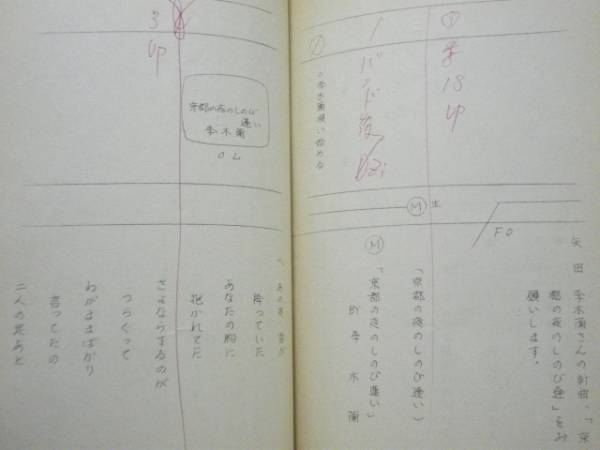 ① 李 1S UP
1 バンド後 / Dzi
①
○李木蘭唄い始める
M 生
FO
矢田 李木蘭さんの新曲、「京
都の夜のしのび逢い」をお
願いします。
「京都の夜のしのび逢い」
M
「京都の夜のしのび逢い」
唄 李木蘭
3 UP
京都の夜のしのび
逢い
李木蘭
OL
〽あのとき 雪が
降っていた
あなたの胸に
抱かれてた
さよならするのが
つらくって
わがままばかり
言ってたの
二人の足あと